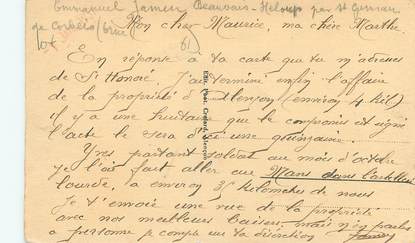 Emmanuel Jamen Beauvais-Heloup par St Germain
de Corbeis / Orne
10f 61
Mon cher Maurice, ma chère Marthe
En réponse à ta carte que tu m'adresses
de St Honoré. J'ai terminé enfin l'affaire
de la propriété d'Alençon (environ 4 kil)
il y a une huitaine que le compromis est signé
l'acte le sera d'ici une quinzaine.
Yves partant soldat au mois d'octobre
je l'ai fait aller au Mans dans l'artillerie
lourde, à environ 35 kilomètres de nous
Je t'envoie une vue de la propriété
avec nos meilleurs baisers mais n'en parles
à personne je compte sur ta discrétion
Edit. Phot. Alençon